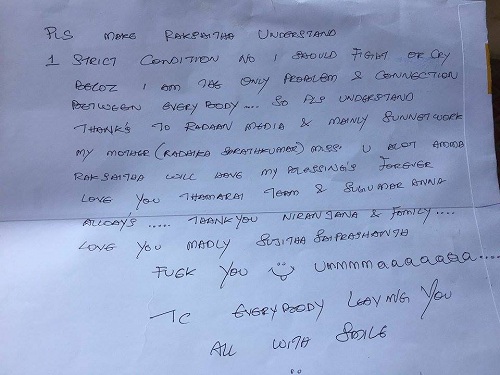 PLS MAKE RAKSAITHA UNDERSTAND
1 STRICT CONDITION NO 1 SHOULD FIGHT OR CRY
BECOZ I AM THE ONLY PROBLEM & CONNECTION
BETWEEN EVERYBODY.... SO PLS UNDERSTAND
THANK'S TO RADAAN MEDIA & MAINLY SUNNETWORK
MY MOTHER (RADHIKA SARATHKUMAR) MISS U ALOT AMMA
RAKSAITHA WILL HAVE MY BLESSING'S FOREVER
LOVE YOU THAMARAI TEAM & SUGUMAR ANNA
ALLDAY'S ..... THANKYOU NIRANJANA & FAMILY....
LOVE YOU MADLY SUJITHA SAIPRASHANTH
FUCK YOU UMMMMaaaaaaa....
TC EVERYBODY LEAVING YOU
ALL WITH SMILE